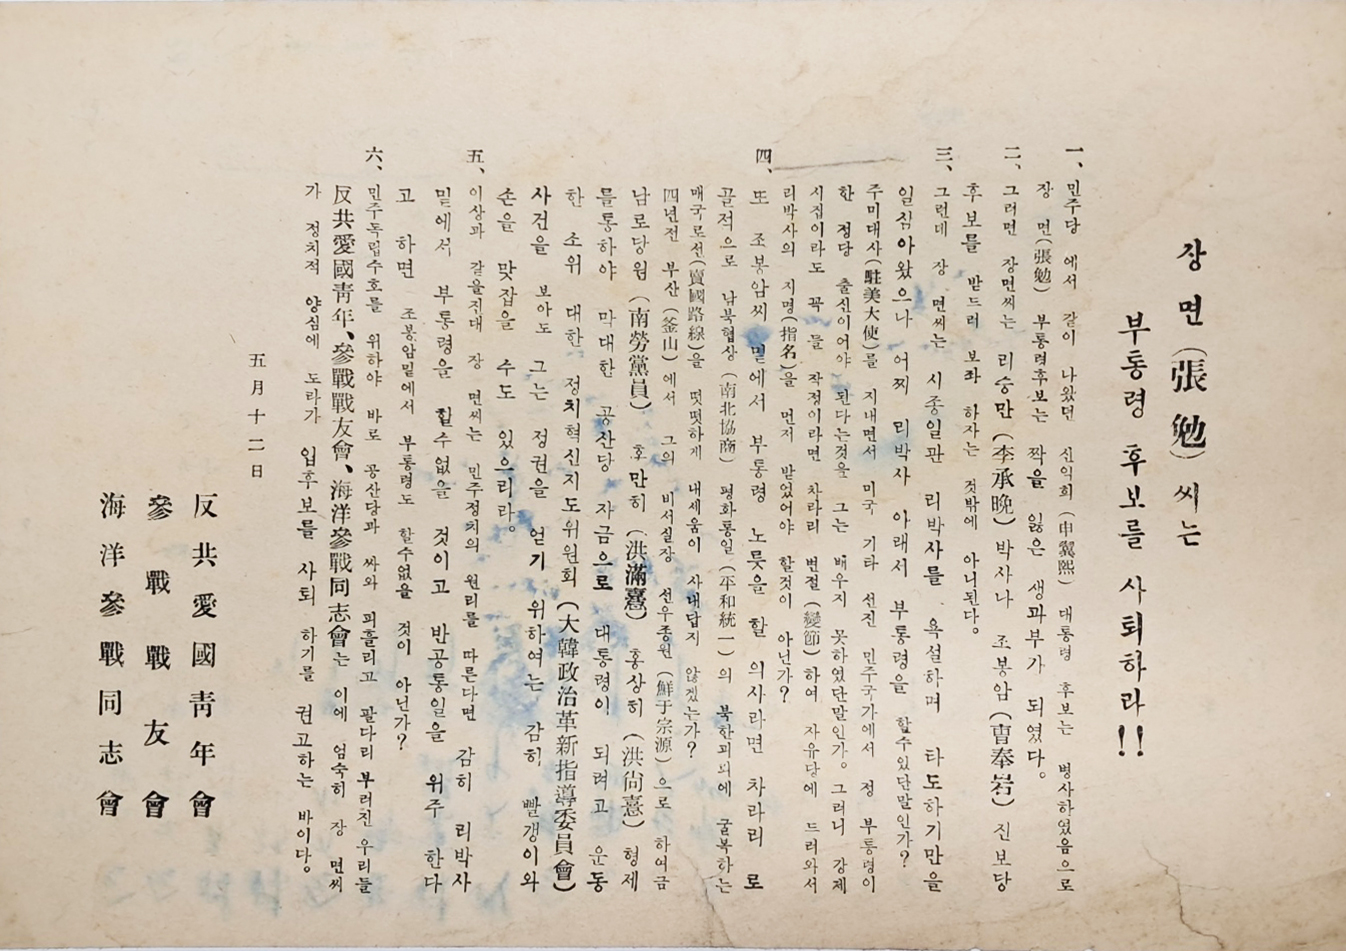 장면(張勉)씨는
부통령 후보를 사퇴하라!!
一、민주당 에서 같이 나왔던 신익희(申翼熙) 대통령 후보는 병사하였음으로
장 면(張勉) 부통령후보는 짝을 잃은 생과부가 되였다。
二、그러면 장면씨는 리승만(李承晩)박사나 조봉암(曺奉岩)진보당
후보를 받드러 보좌 하자는 것밖에 아니된다。
三、그런데 장 면씨는 시종일관 리박사를 욕설하며 타도하기만을
일심아왔으나 어찌 리박사 아래서 부통령을 할수있단말인가?
주미대사(駐美大使)를 지내면서 미국 기타 선진 민주국가에서 정 부통령이
한 정당 출신이어야 된다는것을 그는 배우지 못하였단말인가。그러니 강제
시집이라도 꼭 들 작정이라면 차라리 변절(變節)하여 자유당에 드러와서
리박사의 지명(指名)을 먼저 받었어야 할것이 아닌가?
四、또 조봉암씨 밑에서 부통령 노릇을 할 의사라면 차라리 로
골적으로 남북협상(南北協商) 평화통일(平和統一)의 북한괴뢰에 굴복하는
매국로선(賣國路線)을 떳떳하게 내세움이 사내답지 않겠는가?
四년전 부산(釜山)에서 그의 비서실장 선우종원(鮮于宗源)으로 하여금
남로당원(南勞黨員) 홍만히(洪滿憙) 홍상히(洪尙憙)형제
를통하야 막대한 공산당 자금으로 대통령이 되려고 운동
한 소위 대한 정치혁신지도위원회(大韓政治革新指導委員會)
사건을 보아도 그는 정권을 얻기 위하여는 감히 빨갱이와
손을 맞잡을 수도 있으리라。
五、이상과 같을진대 장 면씨는 민주정치의 원리를 따른다면 감히 리박사
밑에서 부통령을 할수없을 것이고 반공통일을 위주 한다
고 하면 조봉암밑에서 부통령도 할수없을 것이 아닌가?
六、민주독립수호를 위하야 바로 공산당과 싸와 피흘리고 팔다리 부러진 우리들
反共愛國靑年、參戰戰友會、海洋參戰同志會는 이에 엄숙히 장 면씨
가 정치적 양심에 도라가 입후보를 사퇴 하기를 권고하는 바이다。
五月十二日
反共愛國靑年會
參戰戰友會
海洋參戰同志會